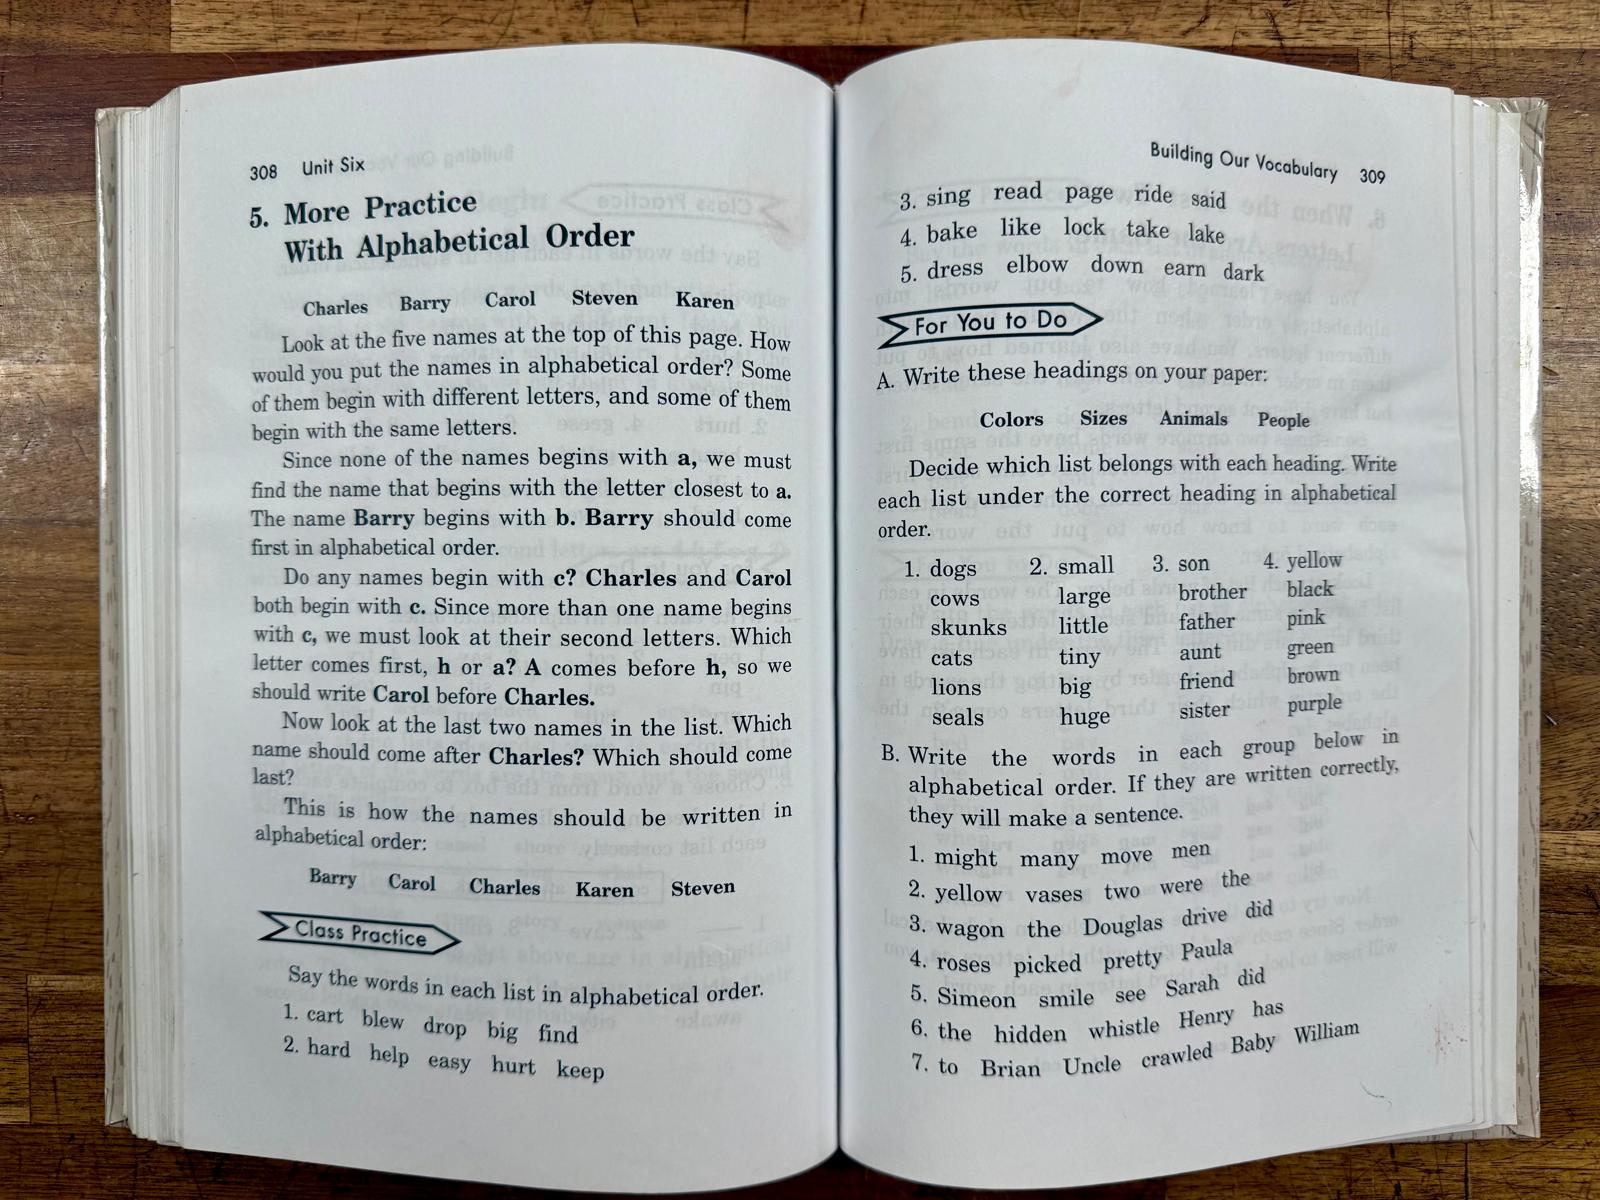 308 Unit Six
5. More Practice
With Alphabetical Order
Charles Barry Carol Steven Karen
Look at the five names at the top of this page. How
would you put the names in alphabetical order? Some
of them begin with different letters, and some of them
begin with the same letters.
Since none of the names begins with a, we must
find the name that begins with the letter closest to a.
The name Barry begins with b. Barry should come
first in alphabetical order.
Do any names begin with c? Charles and Carol
both begin with c. Since more than one name begins
with c, we must look at their second letters. Which
letter comes first, h or a? A comes before h, so we
should write Carol before Charles.
Now look at the last two names in the list. Which
name should come after Charles? Which should come
last?
This is how the names should be written in
alphabetical order:
Barry Carol Charles Karen Steven
Class Practice
Say the words in each list in alphabetical order.
1. cart blew drop big find
2. hard help easy hurt keep
Building Our Vocabulary 309
3. sing read page ride said
4. bake like lock take lake
5. dress elbow down earn dark
For You to Do
A. Write these headings on your paper:
Colors Sizes Animals People
Decide which list belongs with each heading. Write
each list under the correct heading in alphabetical
order.
1. dogs 2. small 3. son 4. yellow
cows large brother black
skunks little father pink
cats tiny aunt green
lions big friend brown
seals huge sister purple
B. Write the words in each group below in
alphabetical order. If they are written correctly,
they will make a sentence.
1. might many move men
2. yellow vases two were the
3. wagon the Douglas drive did
4. roses picked pretty Paula
5. Simeon smile see Sarah did
6. the hidden whistle Henry has
7. to Brian Uncle crawled Baby William